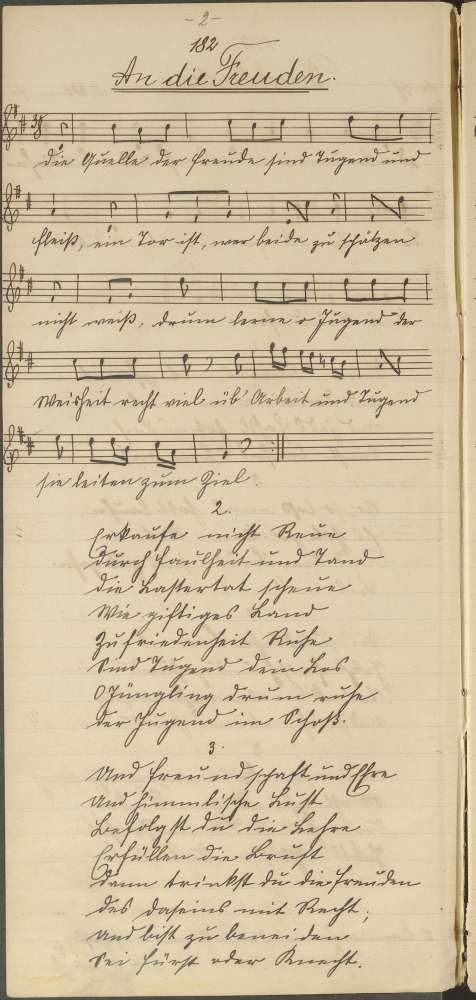 - 2 -
182
An die Freuden.
Die Quelle der Freude sind Tugend und
Fleiß, ein Tor ist, wer beide zu schätzen
nicht weiß, drum lerne o Jugend der
Weisheit recht viel üb' Arbeit und Tugend
sie leiten zum Ziel.
2.
Erkaufe nicht Reue
Durch Faulheit und Tand
Die Lastertat scheue
Wie giftiges Land
Zufriedenheit Ruhe
Sind Tugend dein Los
O Jüngling drum ruhe
Der Jugend im Schoß.
3.
Und Freundschaft und Ehre
Und himmlische Lust
Befolgst du die Lehre
Erfüllen die Brust
Dann trinkst du die Freuden
Des Daseins mit Recht;
Und bist zu beneiden
Sei Fürst oder Knecht.